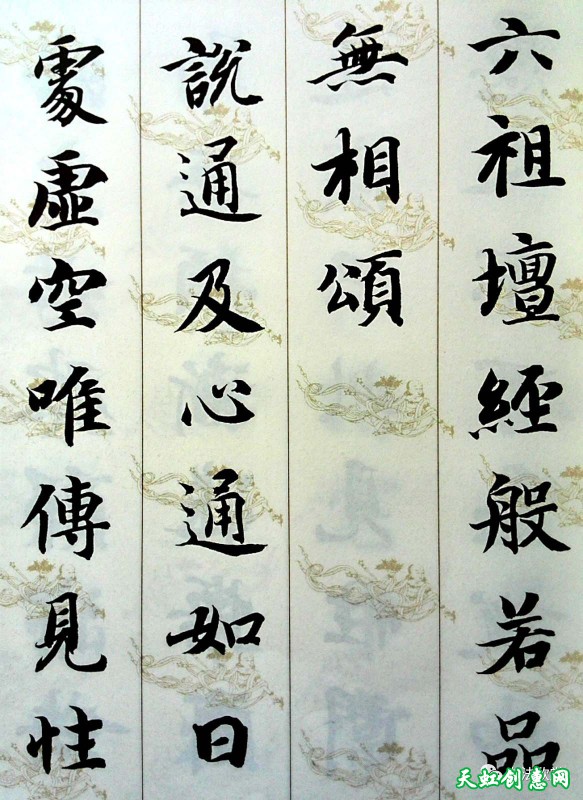 六祖壇經般若品
無相頌
說通及心通如日
處虛空唯傳見性
天虹创意网